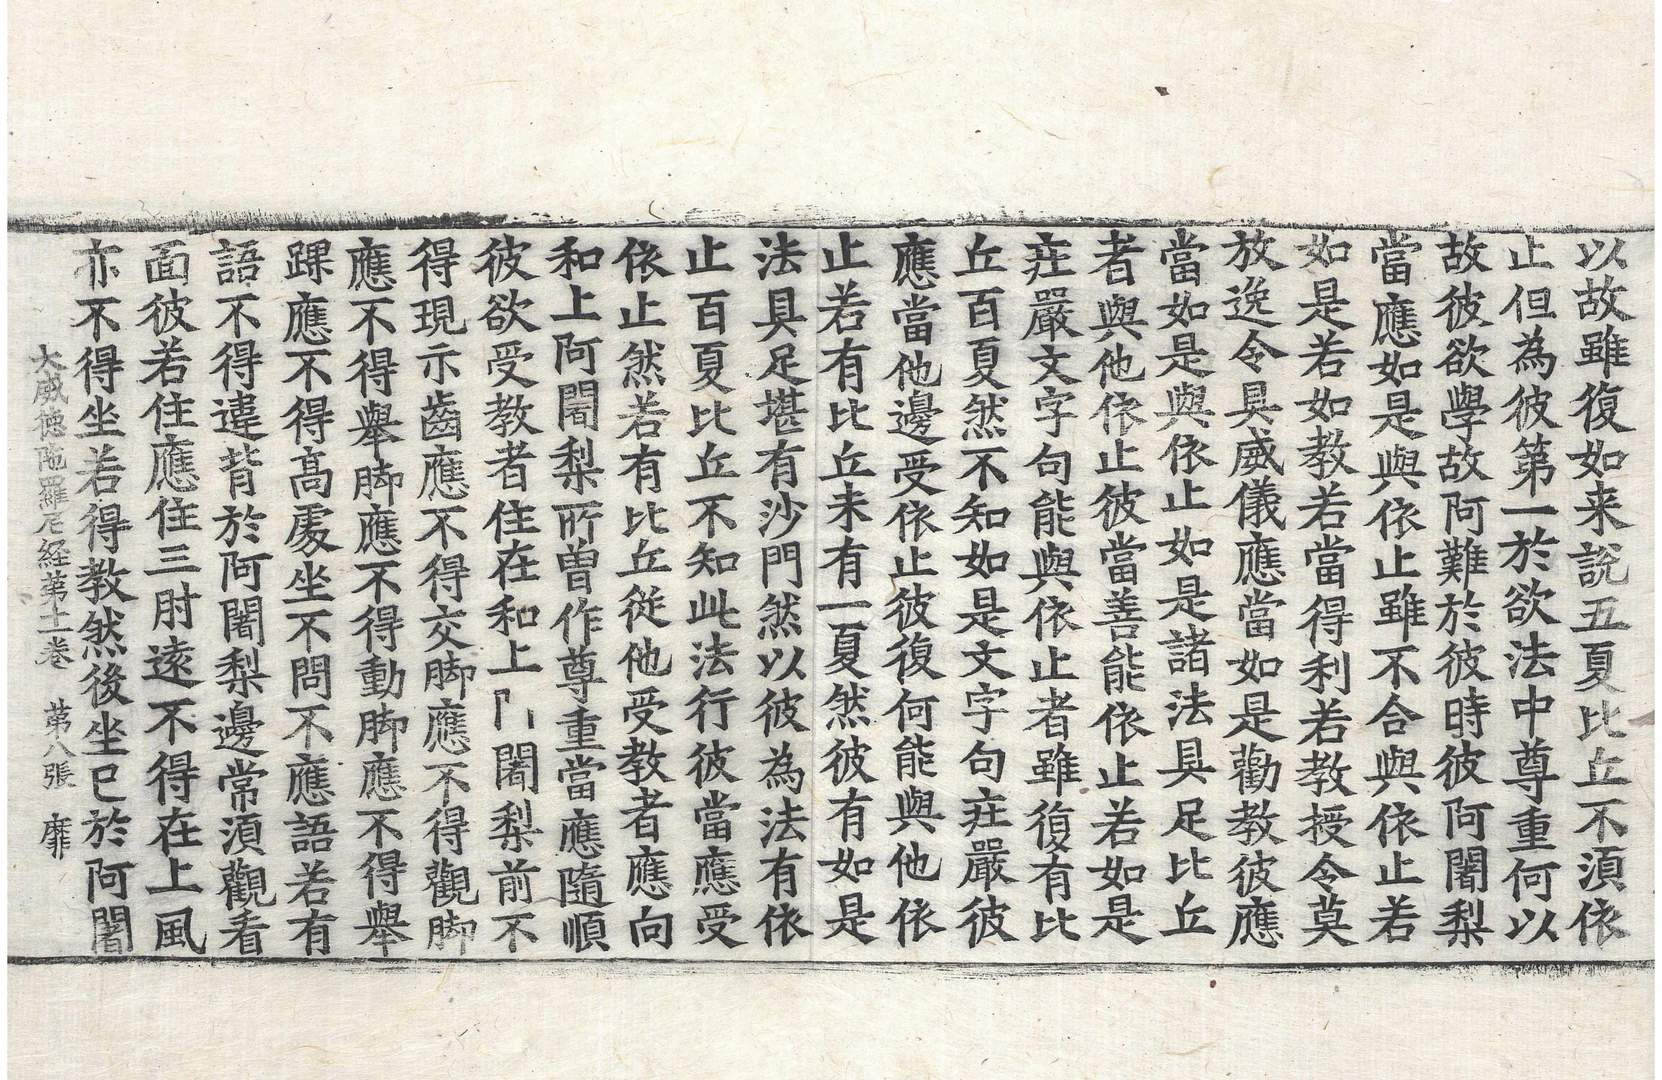 以故雖復如来說五夏比丘不須依
止但為彼第一於欲法中尊重何以
故彼欲學故阿難於彼時彼阿闍梨
當應如是與依止雖不合與依止若
如是若如教若當得利若教授令莫
放逸令具威儀應當如是勸教彼應
當如是與依止如是諸法具足比丘
者與他依止彼當善能依止若如是
莊嚴文字句能與依止者雖復有比
丘百夏然不知如是文字句莊嚴彼
應當他邊受依止彼復何能與他依
止若有比丘未有一夏然彼有如是
法具足堪有沙門然以彼為法有依
止百夏比丘不知此法行彼當應受
依止然若有比丘從他受教者應向
和上阿闍梨所曽作尊重當應隨順
彼欲受教者住在和上闍梨前不
得現示齒應不得交脚應不得觀脚
應不得舉脚應不得動脚應不得舉
踝應不得高處坐不問不應語若有
語不得違背於阿闍梨邊常須觀看
面彼若住應住三肘遠不得在上風
亦不得坐若得教然後坐已於阿闍
大威德陁羅尼経第十一卷 第八張 靡